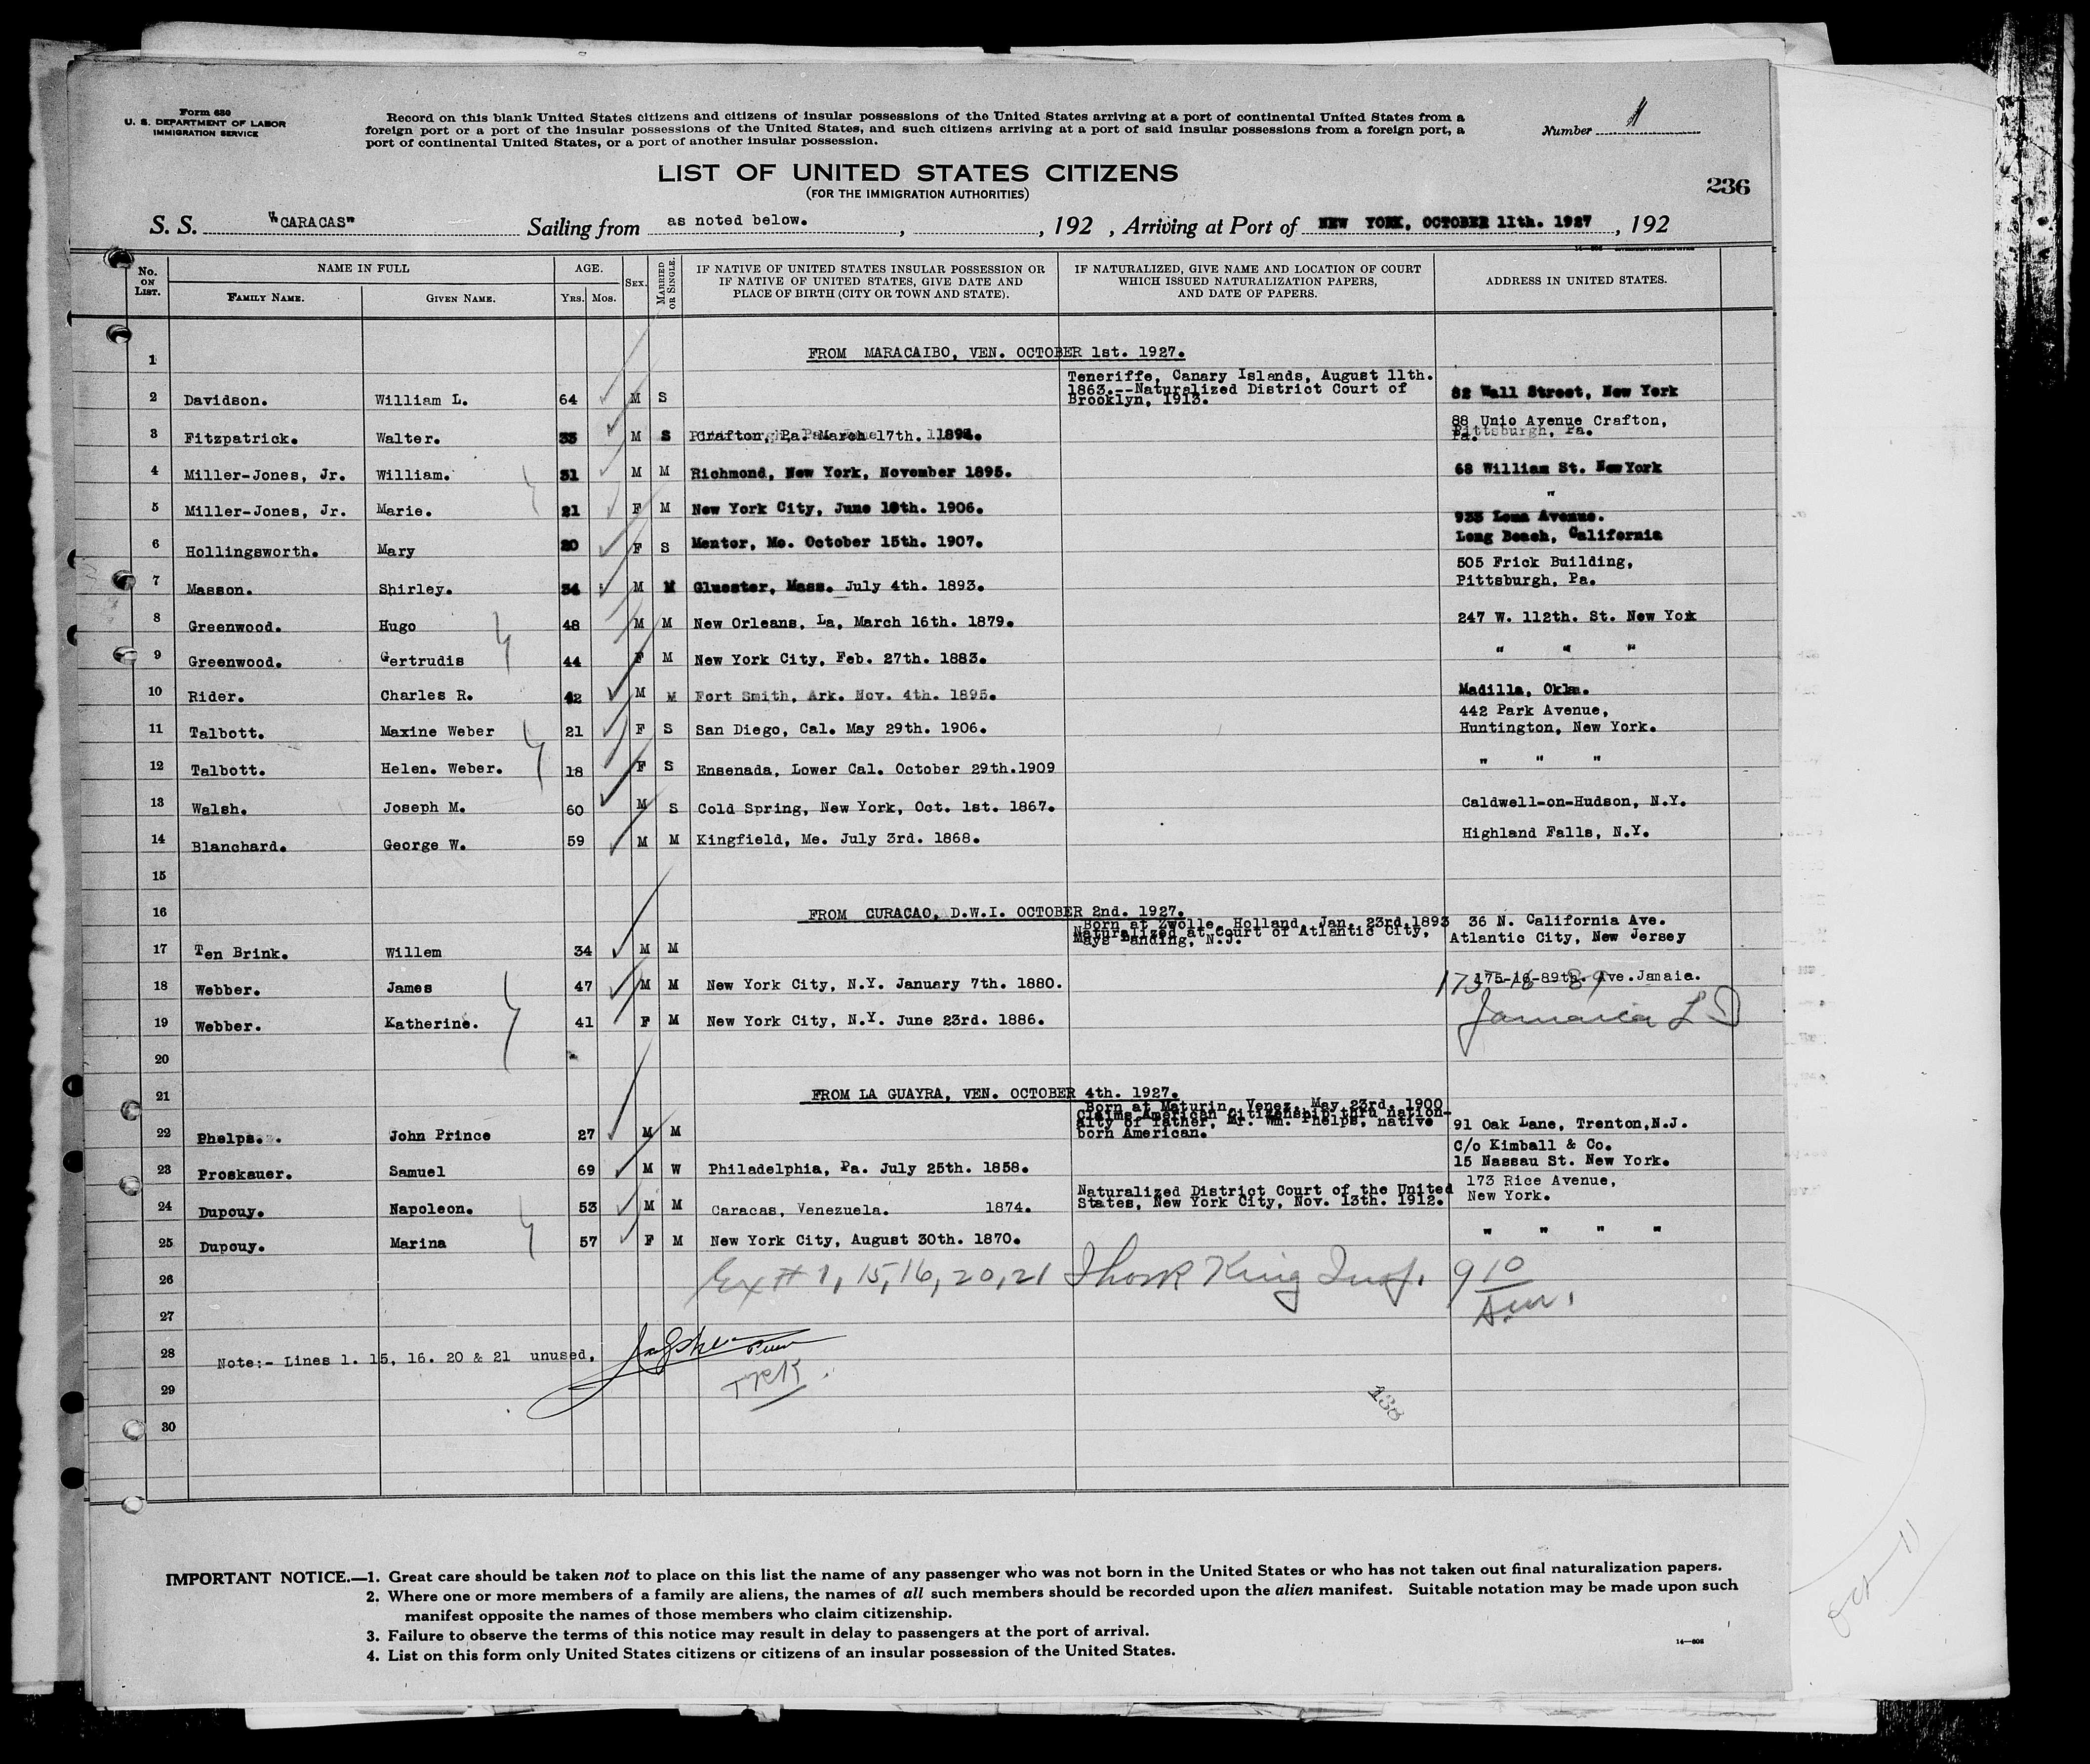 Form 630
U. S. DEPARTMENT OF LABOR
IMMIGRATION SERVICE
Record on this blank United States citizens and citizens of insular possessions of the United States arriving at a port of continental United States from a
foreign port or a port of the insular possessions of the United States, and such citizens arriving at a port of said insular possessions from a foreign port, a
port of continental United States, or a port of another insular possession.
Number 1
LIST OF UNITED STATES CITIZENS
(FOR THE IMMIGRATION AUTHORITIES)
236
S. S. "CARACAS" Sailing from as noted below. , , 192 , Arriving at Port of NEW YORK, OCTOBER 11th. 1927 , 192
No. ON LIST. NAME IN FULL AGE. SEX. MARRIED OR SINGLE. IF NATIVE OF UNITED STATES INSULAR POSSESSION OR IF NATIVE OF UNITED STATES, GIVE DATE AND PLACE OF BIRTH (CITY OR TOWN AND STATE). IF NATURALIZED, GIVE NAME AND LOCATION OF COURT WHICH ISSUED NATURALIZATION PAPERS, AND DATE OF PAPERS. ADDRESS IN UNITED STATES.
FAMILY NAME. GIVEN NAME. YRS. MOS.
1 FROM MARACAIBO, VEN. OCTOBER 1st. 1927.
2 Davidson. William L. 64 M S Teneriffe, Canary Islands, August 11th. 1863.--Naturalized District Court of Brooklyn, 1913. 82 Wall Street, New York
3 Fitzpatrick. Walter. 33 M S Crafton, Pa. March 17th. 1894. 88 Unio Avenue Crafton, Pa.
4 Miller-Jones, Jr. William. 31 M M Richmond, New York, November 1895. 68 William St. New York
5 Miller-Jones, Jr. Marie. 21 F M New York City, June 10th. 1906. "
6 Hollingsworth. Mary 20 F S Mentor, Mo. October 15th. 1907. 933 Avenue. Long Beach, California
7 Masson. Shirley. 34 M M Gluester, Mass. July 4th. 1893. 505 Frick Building, Pittsburgh, Pa.
8 Greenwood. Hugo 48 M M New Orleans, La, March 16th. 1879. 247 W. 112th. St. New Yok
9 Greenwood. Gertrudis 44 F M New York City, Feb. 27th. 1883. " " "
10 Rider. Charles R. 42 M M Fort Smith, Ark. Nov. 4th. 1895. Madilla, Okla.
11 Talbott. Maxine Weber 21 F S San Diego, Cal. May 29th. 1906. 442 Park Avenue, Huntington, New York.
12 Talbott. Helen. Weber. 18 F S Ensenada, Lower Cal. October 29th.1909 " " "
13 Walsh. Joseph M. 60 M S Cold Spring, New York, Oct. 1st. 1867. Caldwell-on-Hudson, N.Y.
14 Blanchard. George W. 59 M M Kingfield, Me. July 3rd. 1868. Highland Falls, N.Y.
15
16 FROM CURACAO, D.W.I. OCTOBER 2nd. 1927.
17 Ten Brink. Willem 34 M M Born at Zwolle, Holland, Jan. 23rd.1893 Naturalized at Court of Atlantic City, Mays Landing, N.J. 36 N. California Ave. Atlantic City, New Jersey
18 Webber. James 47 M M New York City, N.Y. January 7th. 1880. 175-16-89th. Ave.Jamaia.
19 Webber. Katherine. 41 F M New York City, N.Y. June 23rd. 1886. Jamaica L I
20
21 FROM LA GUAYRA, VEN. OCTOBER 4th. 1927.
22 Phelps. John Prince 27 M M Born at Maturin, Venez. May 23rd. 1900 Claims American Citizenship thru nation- ality of father, Mr. Wm. Phelps, native born American. 91 Oak Lane, Trenton,N.J.
23 Proskauer. Samuel 69 M W Philadelphia, Pa. July 25th. 1858. C/o Kimball & Co. 15 Nassau St. New York.
24 Dupouy. Napoleon. 53 M M Caracas, Venezuela. 1874. Naturalized District Court of the United States, New York City, Nov. 13th. 1912. 173 Rice Avenue, New York.
25 Dupouy. Marina 57 F M New York City, August 30th. 1870. " " " "
26 Ex # 1, 15, 16, 20, 21 King Insp. 9 10
27
28 Note:- Lines 1. 15, 16. 20 & 21 unused.
29
30
138
IMPORTANT NOTICE.—1. Great care should be taken not to place on this list the name of any passenger who was not born in the United States or who has not taken out final naturalization papers.
2. Where one or more members of a family are aliens, the names of all such members should be recorded upon the alien manifest. Suitable notation may be made upon such
manifest opposite the names of those members who claim citizenship.
3. Failure to observe the terms of this notice may result in delay to passengers at the port of arrival.
4. List on this form only United States citizens or citizens of an insular possession of the United States.